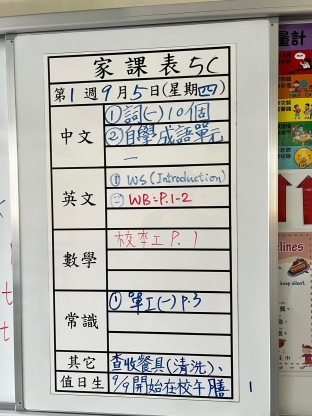 家課表 5C
第1週9月5日(星期四)
中文
①詞(一)10個
②自學成語單元
一
英文
① WS (Introduction)
② WB=P.1-2
數學
校本工 P.1
常識
① 單工(一)P.3
其它
查收餐具(清洗)、
值日生
9/9開始在校午膳
1
量計
lines
keep silent.